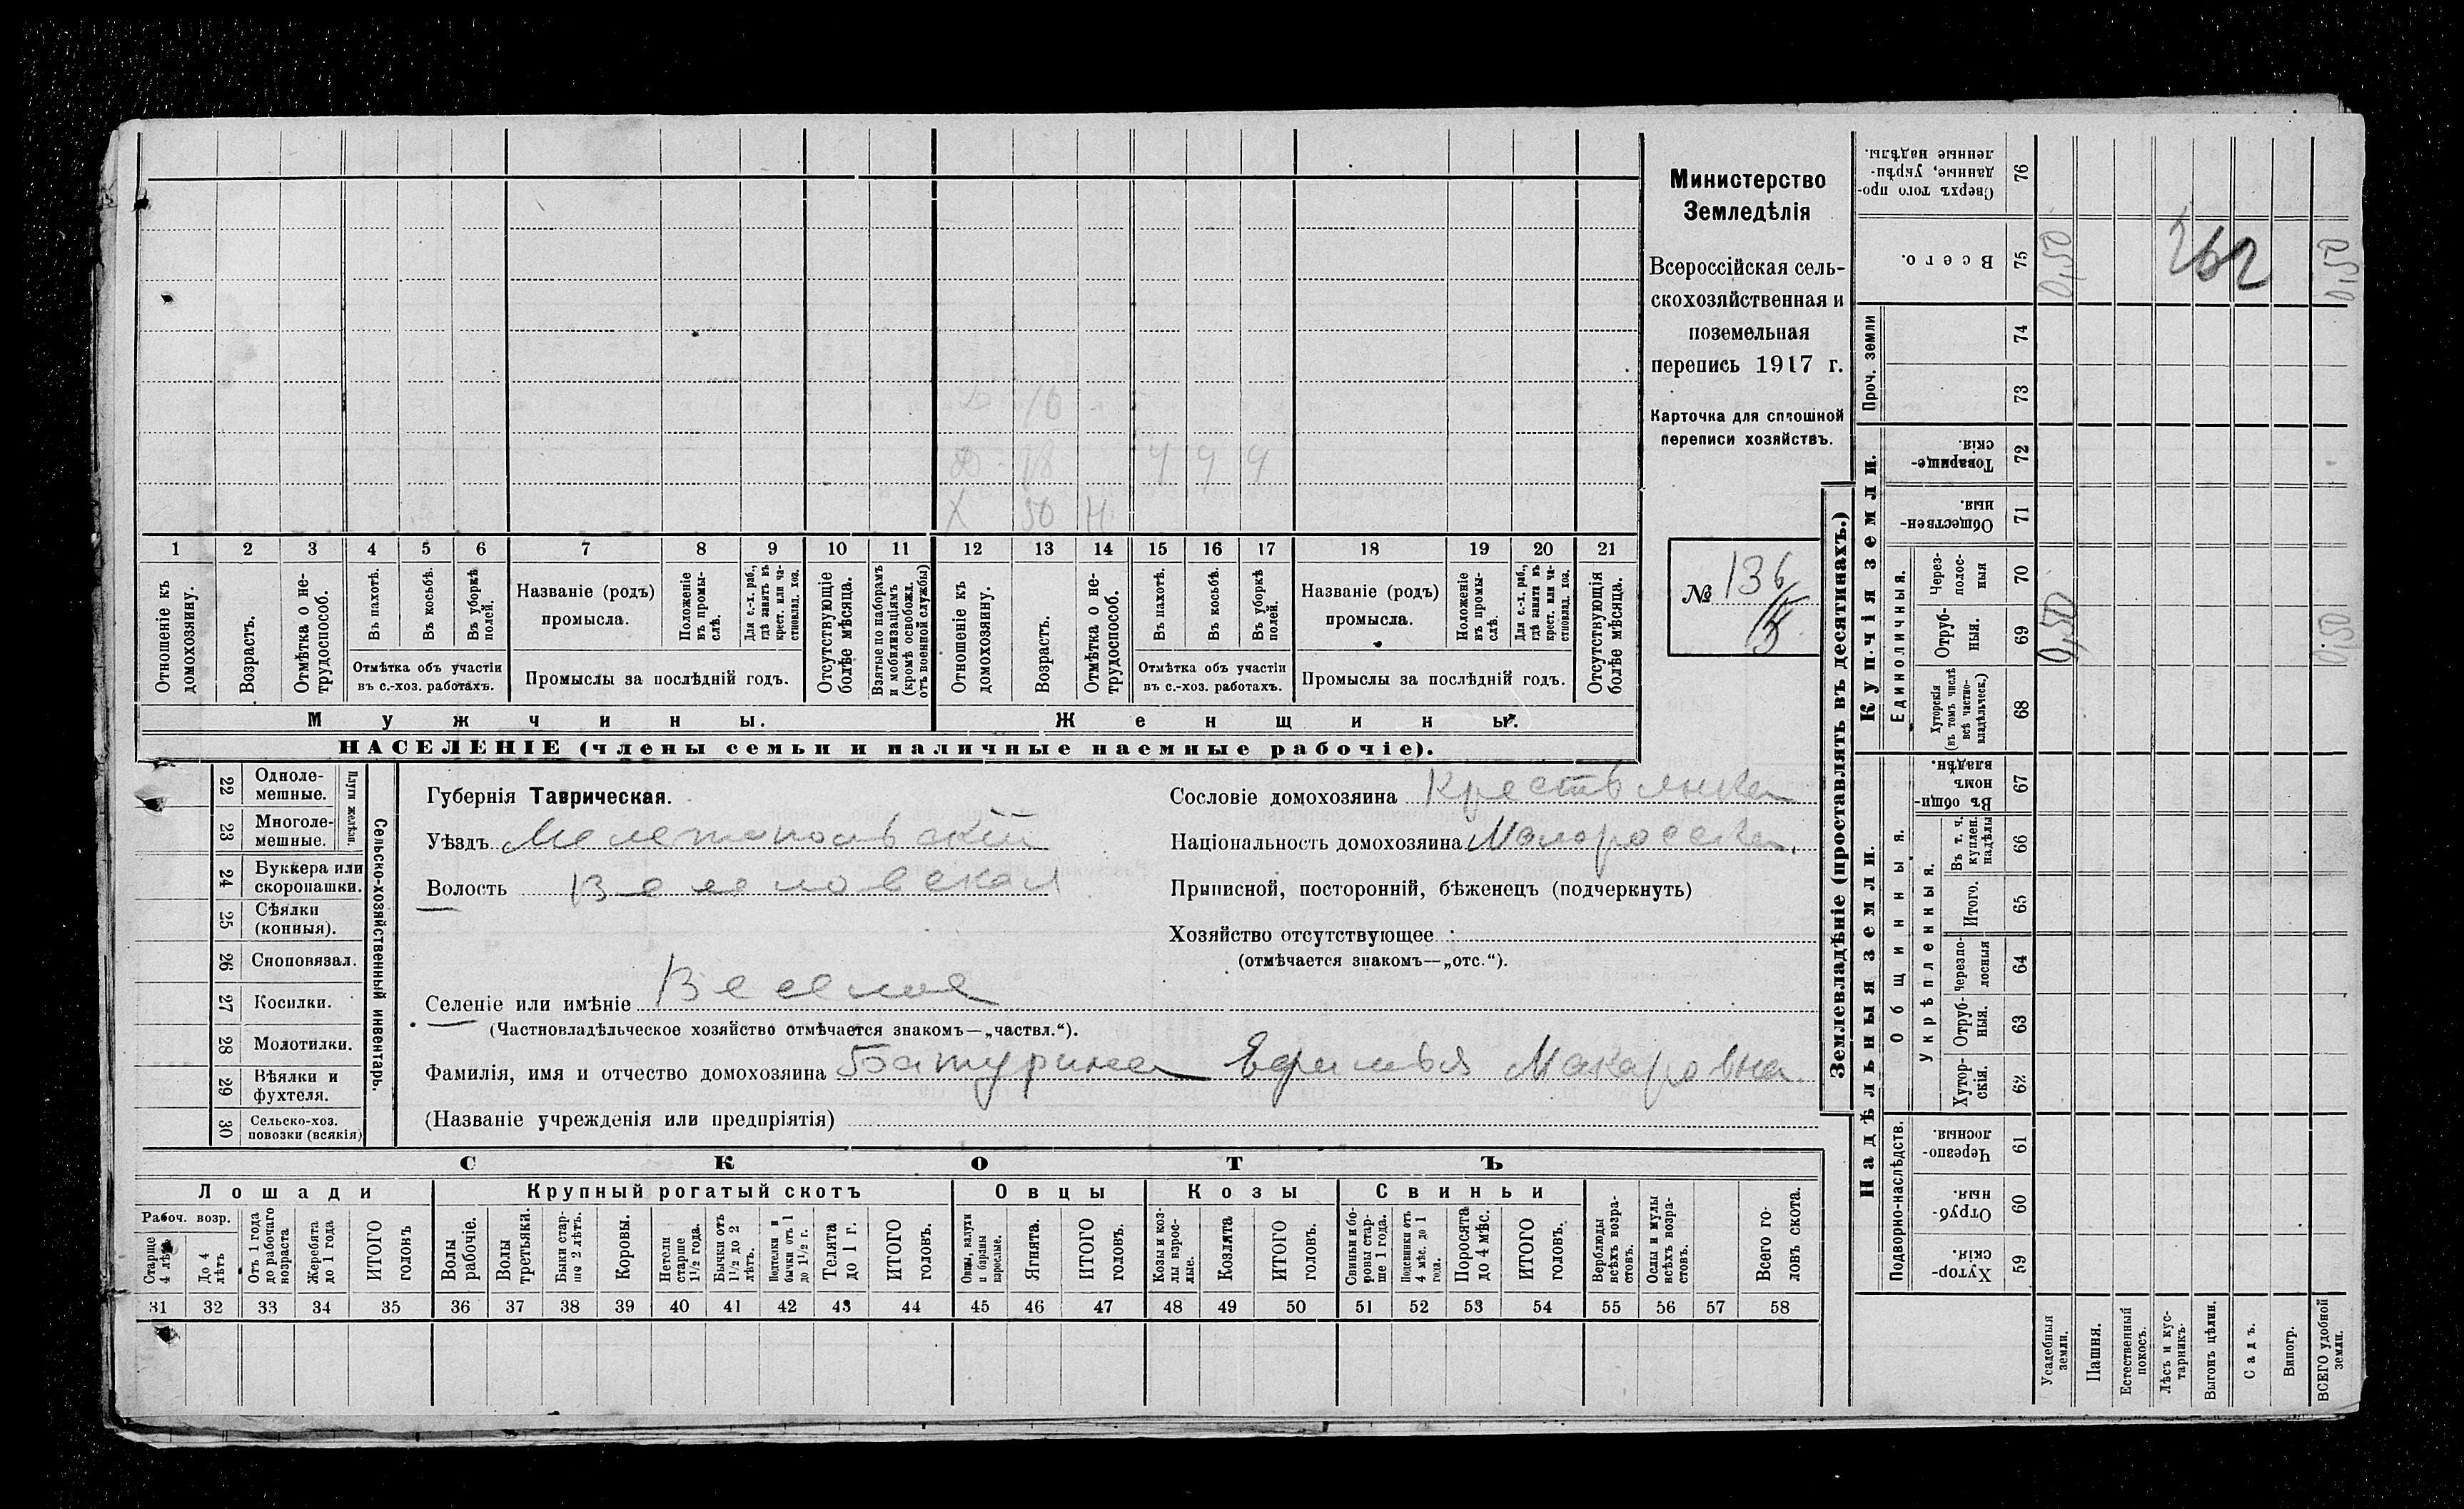 Министерство
Земледѣлія
Всероссійская сель-
скохозяйственная и
поземельная
перепись 1917 г.
Карточка для сплошной
переписи хозяйствъ.
№ 136
15
Д 16
Д 18 Ч Ч Ч
Х 50 Н
1 2 3 4 5 6 7 8 9 10 11 12 13 14 15 16 17 18 19 20 21
Отношеніе къ домохозяину.
Возрастъ.
Отмѣтка о не-трудоспособ.
Въ пахотѣ.
Въ косьбѣ.
Въ уборкѣ полей.
Отмѣтка объ участіи
въ с.-хоз. работахъ.
Названіе (родъ)
промысла.
Положеніе въ промы-слѣ.
Для с.-х. раб., гдѣ занятъ въ крест. или ча-стновлад. хоз.
Промыслы за послѣдній годъ.
Отсутствующіе болѣе мѣсяца.
Взятые по наборамъ и мобилизаціямъ (кромѣ освобожд. отъ военной службы)
Отношеніе къ домохозяину.
Возрастъ.
Отмѣтка о не-трудоспособ.
Въ пахотѣ.
Въ косьбѣ.
Въ уборкѣ полей.
Отмѣтка объ участіи
въ с.-хоз. работахъ.
Названіе (родъ)
промысла.
Положеніе въ промы-слѣ.
Для с.-х. раб., гдѣ занята въ крест. или ча-стновлад. хоз.
Промыслы за послѣдній годъ.
Отсутствующія болѣе мѣсяца.
Мужчины.
Женщины.
НАСЕЛЕНІЕ (члены семьи и наличные наемные рабочіе).
22 Одноле-мешные.
23 Многоле-мешные.
Плуги желѣзн.
24 Буккера или скоропашки.
25 Сѣялки (конныя).
26 Сноповязал.
27 Косилки.
28 Молотилки.
29 Вѣялки и фухтеля.
30 Сельско-хоз. повозки (всякія)
Сельско-хозяйственный инвентарь.
Губернія Таврическая.
Уѣздъ Мелетопольскій
Волость Веселовская
Селеніе или имѣніе Веселое
(Частновладѣльческое хозяйство отмѣчается знакомъ—„частвл.“).
Фамилія, имя и отчество домохозяина Батурина Ефимья Макаровна
(Названіе учрежденія или предпріятія)
Сословіе домохозяина Крестьянка
Національность домохозяина Малоросска.
Приписной, посторонній, бѣженецъ (подчеркнуть)
Хозяйство отсутствующее
(отмѣчается знакомъ—„отс.“).
СКОТЪ
Лошади
Крупный рогатый скотъ
Овцы
Козы
Свиньи
Рабоч. возр.
Старше 4 лѣтъ
До 4 лѣтъ
Отъ 1 года до рабочаго возраста
Жеребята до 1 года
ИТОГО головъ
Волы рабочіе.
Волы третьяки.
Быки стар-ше 2 лѣтъ.
Коровы.
Нетели старше 1½ года.
Бычки отъ 1½ до 2 лѣтъ.
Подтелки и бычки отъ 1 до 1½ г.
Телята до 1 г.
ИТОГО головъ.
Овцы, валухи и бараны взрослые.
Ягнята.
ИТОГО головъ.
Козы и коз-лы взрос-лые.
Козлята
ИТОГО головъ.
Свиньи и бо-ровы стар-ше 1 года.
Подсвинки отъ 4 мѣс. до 1 года.
Поросята до 4 мѣс.
ИТОГО головъ.
Верблюды всѣхъ возра-стовъ.
Ослы и мулы всѣхъ возра-стовъ.
Всего го-ловъ скота.
31 32 33 34 35 36 37 38 39 40 41 42 43 44 45 46 47 48 49 50 51 52 53 54 55 56 57 58
Землевладѣніе (проставлять въ десятинахъ.)
Купчія земли.
Надѣльныя земли.
Проч. земли
Единоличныя.
Общинныя.
Укрѣпленныя.
Подворно-наслѣдств.
Сверхъ того про-данные, укрѣп-ленные надѣлы. 76
Всего. 75 0,50 262 0,50
74
73
Товарище-скія. 72
Обществен-ныя. 71
Через-полос-ныя 70
Отруб-ныя. 69 0,50 0,50
Хуторскія (въ томъ числѣ всѣ частно-владѣльческ.) 68
Въ общин-номъ владѣн. 67
Въ т. ч. куплен. надѣлы 66
Итого. 65
Черезпо-лосныя 64
Отруб-ныя. 63
Хутор-скія. 62
Черезпо-лосныя. 61
Отруб-ныя. 60
Хутор-скія. 59
Усадебныя земли.
Пашня.
Естественный покосъ.
Лѣсъ и кус-тарникъ.
Выгонъ цѣлин.
Садъ.
Виногр.
ВСЕГО удобной земли.